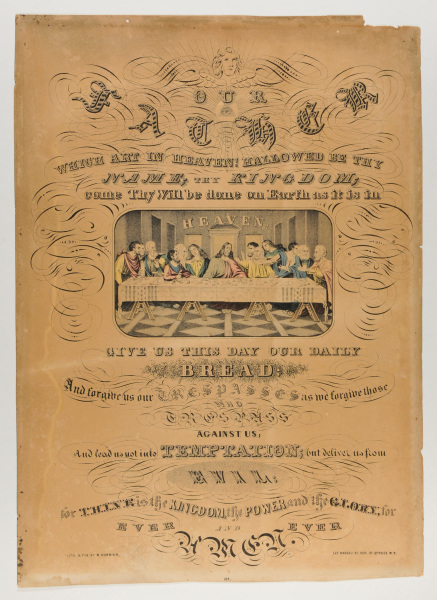 OUR
FATHER
WHICH ART IN HEAVEN! HALLOWED BE THY
NAME, THY KINGDOM;
come Thy Will be done on Earth as it is in
HEAVEN
GIVE US THIS DAY OUR DAILY
BREAD:
And forgive us our TRESPASSES as we forgive those
WHO
TRESPASS
AGAINST US;
And lead us not into TEMPTATION; but deliver us from
EVIL:
for THINE is the KINGDOM, the POWER and the GLORY, for
EVER AND EVER
AMEN.